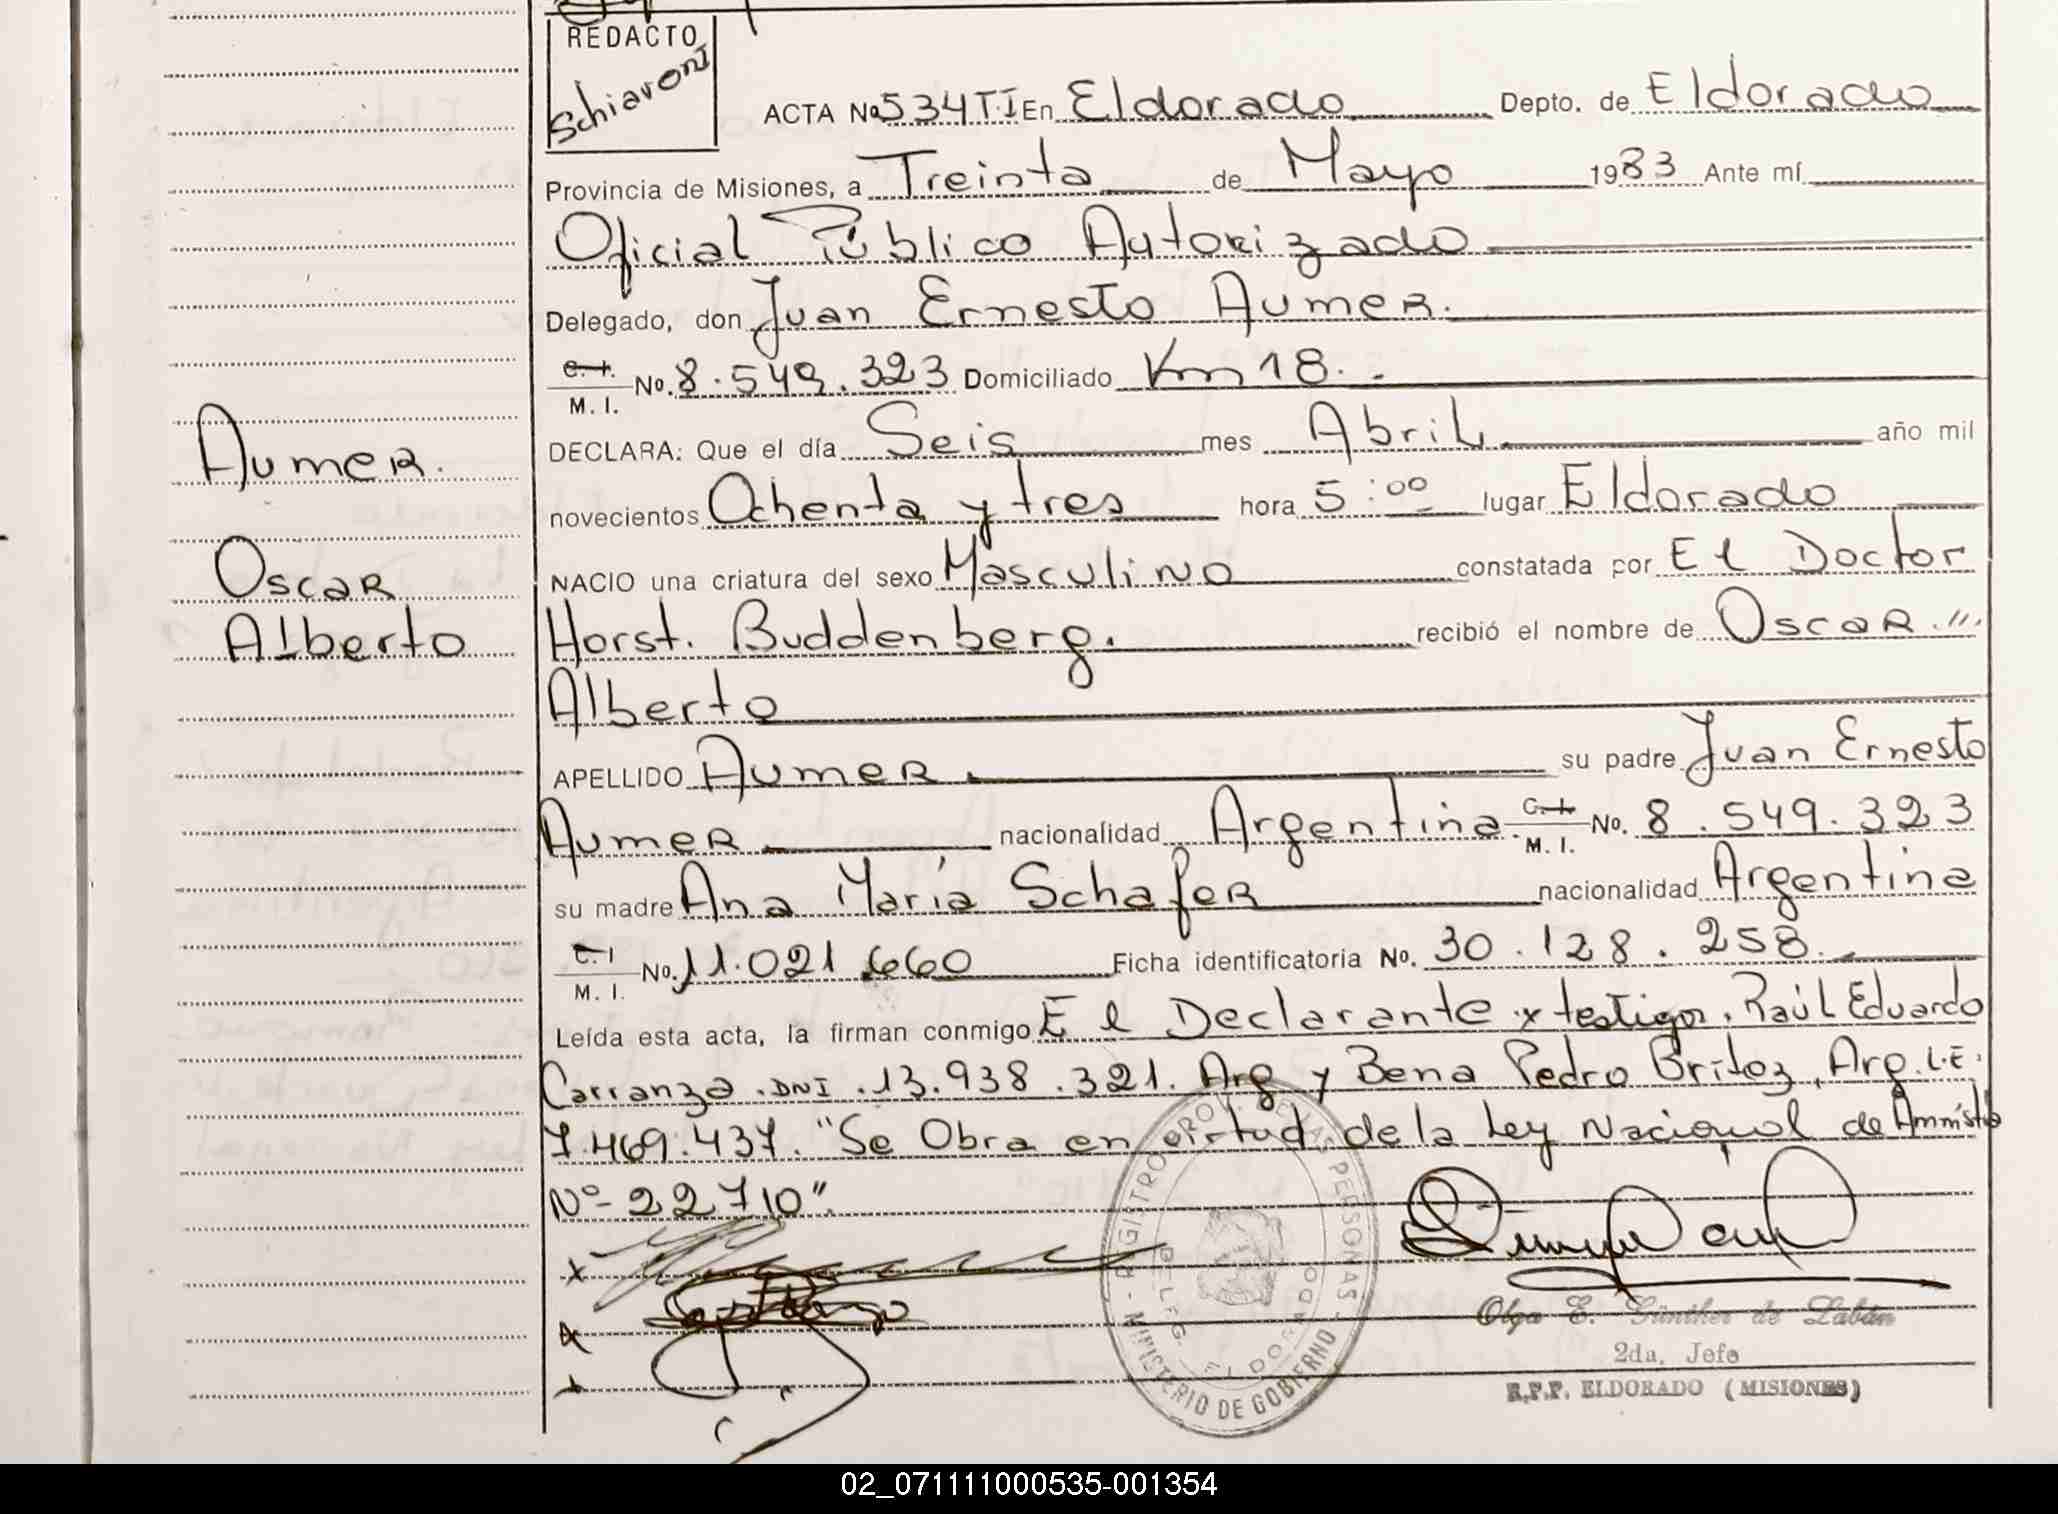 REDACTO
Schiaroni
ACTA No 534 T.I En Eldorado Depto. de Eldorado
Provincia de Misiones, a Treinta de Mayo 1983 Ante mí
Oficial Público Autorizado
Delegado, don Juan Ernesto Aumer.
C. I. M. I. No. 8.549.323 Domiciliado Km 18.
DECLARA: Que el día Seis mes Abril año mil
novecientos Ochenta y tres hora 5:00 lugar Eldorado
NACIO una criatura del sexo Masculino constatada por El Doctor
Horst. Buddenberg. recibió el nombre de Oscar
Alberto
APELLIDO Aumer su padre Juan Ernesto
Aumer nacionalidad Argentina. C. I. M. I. No. 8.549.323
su madre Ana María Schafer nacionalidad Argentina
C. I. M. I. No. 11.021.660 Ficha identificatoria No. 30.128.258
Leída esta acta, la firman conmigo El Declarante y testigos, Raúl Eduardo
Carranza. DNI. 13.938.321. Arg y Bena Pedro Britoz, Arg. L.E.
7.469.437. "Se Obra en virtud de la Ley Nacional de Amnistía
Nº- 22710"
Aumer.
Oscar
Alberto
REGISTRO PROV. DE LAS PERSONAS - MINISTERIO DE GOBIERNO
DELEG. ELDORADO
Olga E. Günther de Labán
2da. Jefe
R.P.P. ELDORADO (MISIONES)
02_071111000535-001354